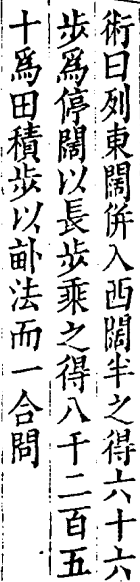 術曰列東闊併入西闊半之得六十六
步爲停闊以長步乘之得八千二百五
十爲田積步以畝法而一合問